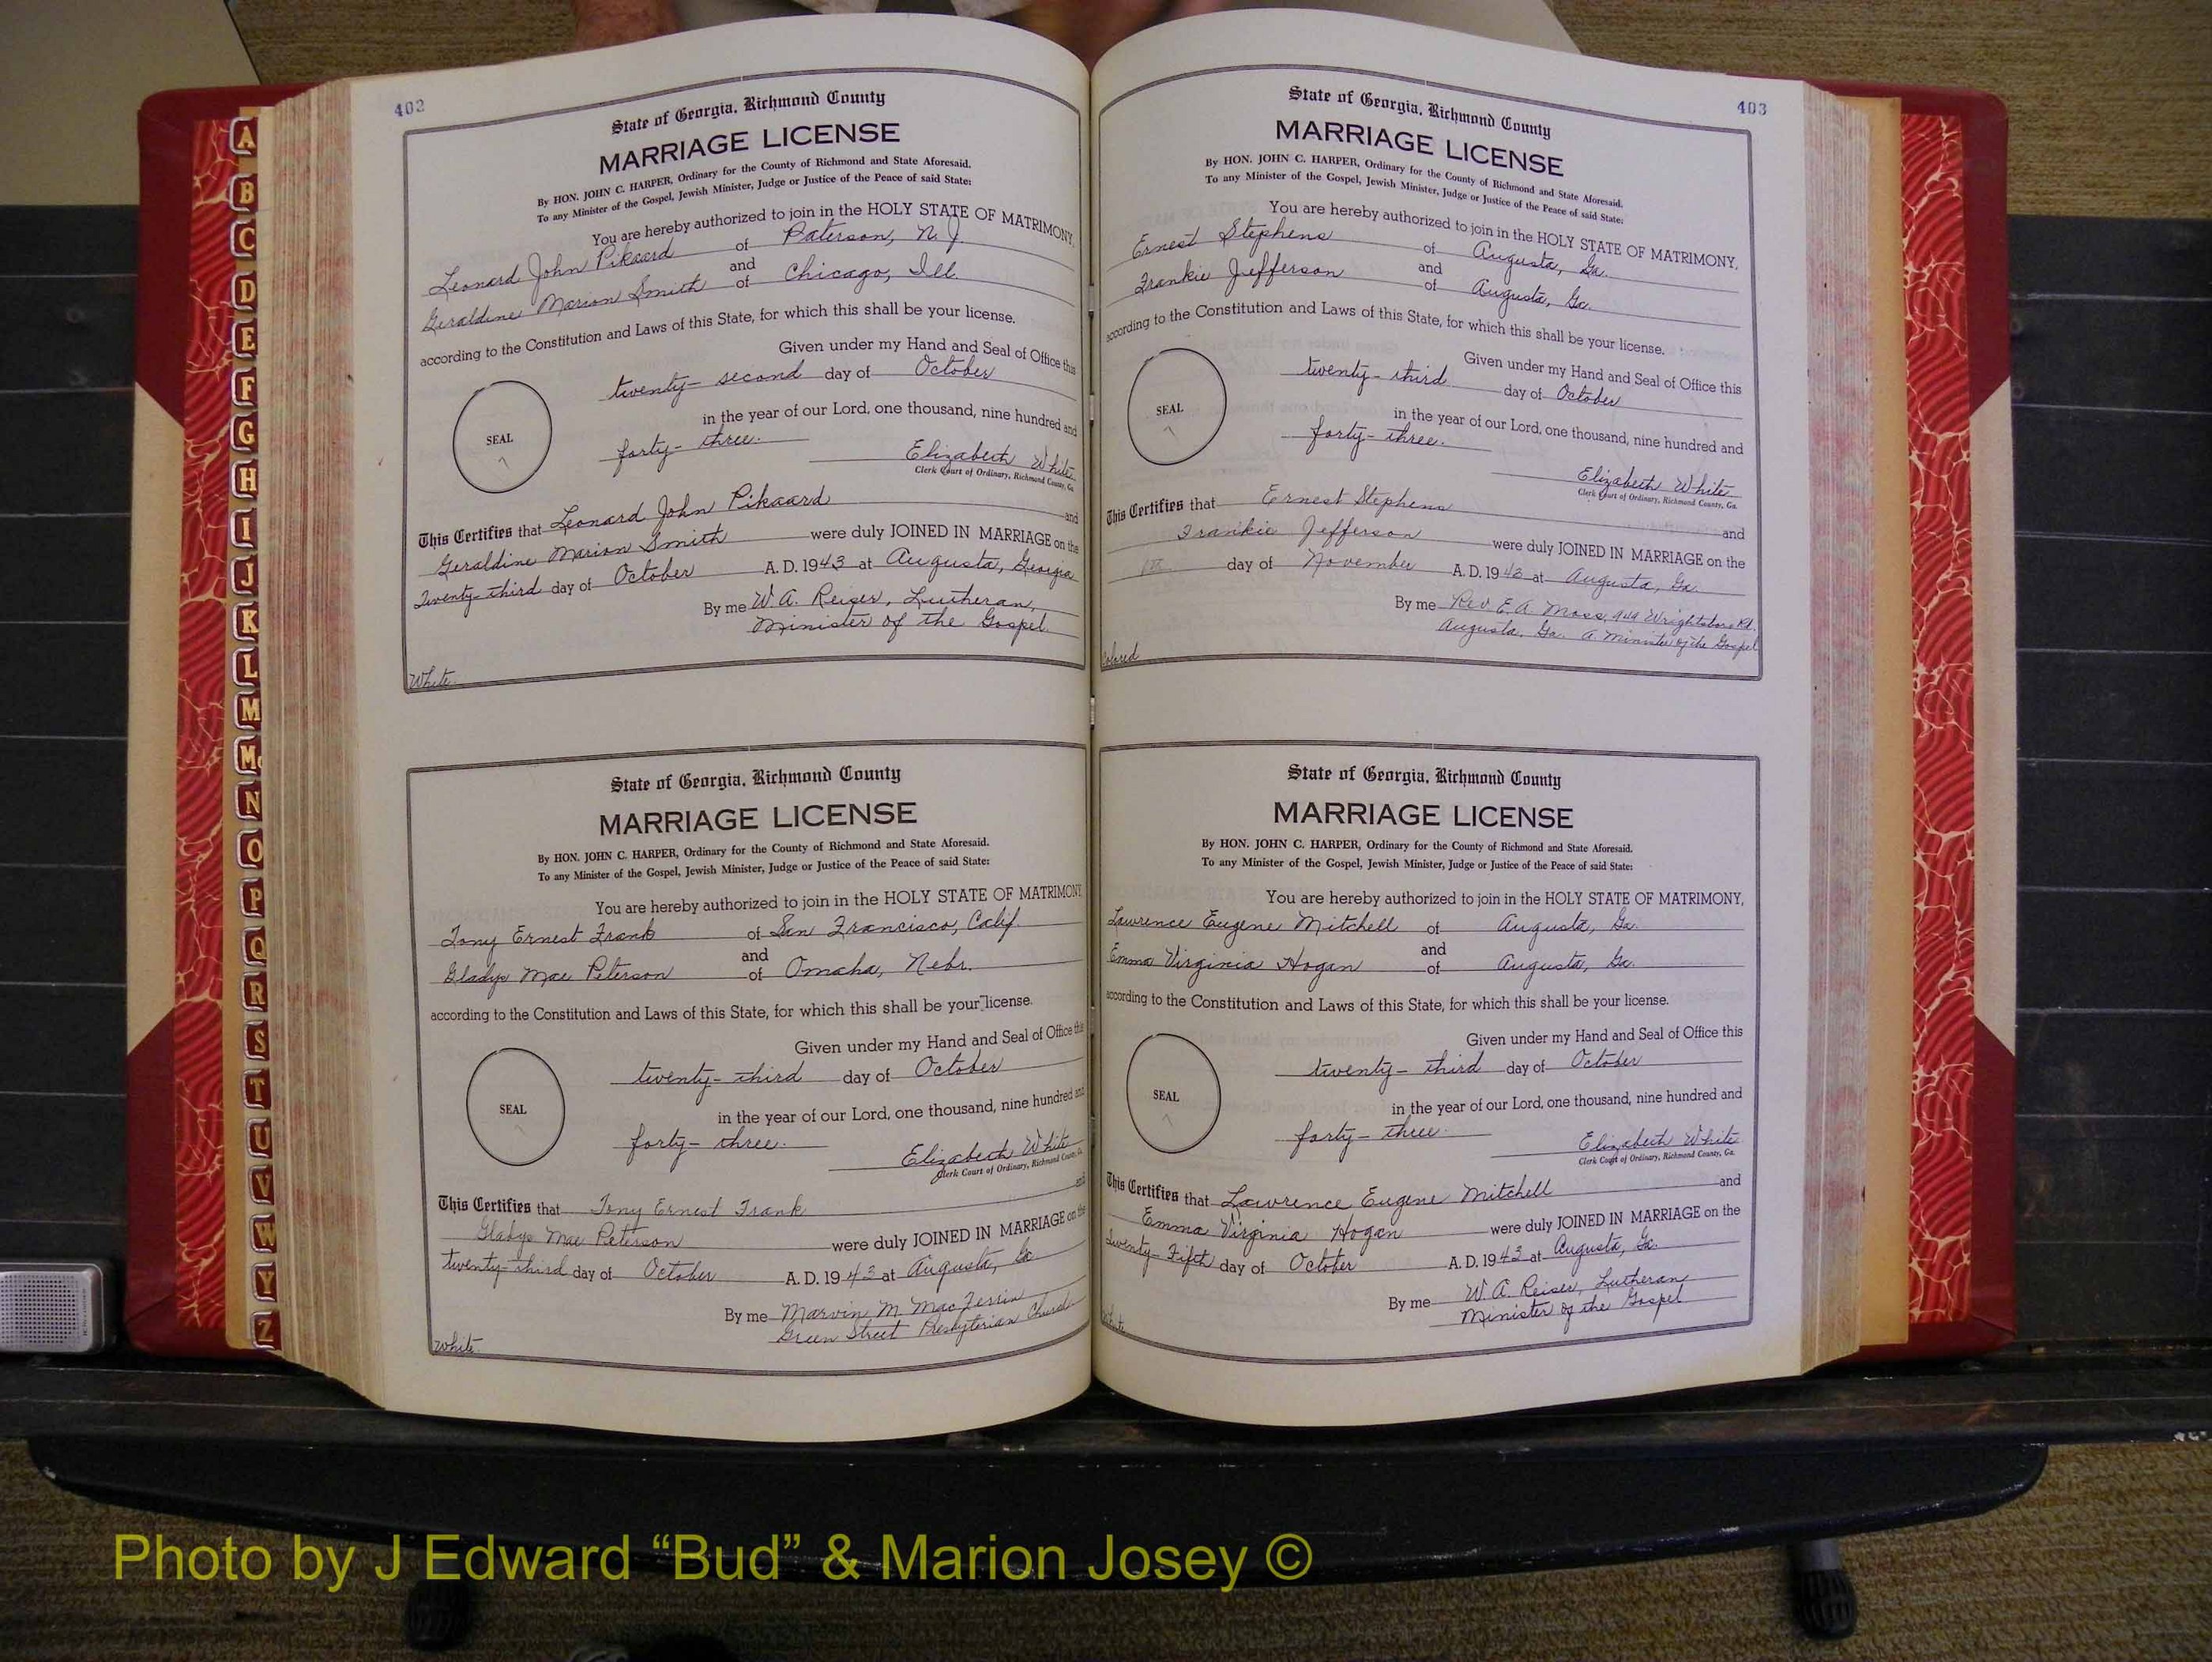 402
State of Georgia, Richmond County
MARRIAGE LICENSE
By HON. JOHN C. HARPER, Ordinary for the County of Richmond and State Aforesaid.
To any Minister of the Gospel, Jewish Minister, Judge or Justice of the Peace of said State:
You are hereby authorized to join in the HOLY STATE OF MATRIMONY,
Leonard John Pikaard of Paterson, N.J.
and
Geraldine Marion Smith of Chicago, Ill.
according to the Constitution and Laws of this State, for which this shall be your license.
Given under my Hand and Seal of Office this
twenty-second day of October
in the year of our Lord, one thousand, nine hundred and
forty-three.
SEAL
Elizabeth White
Clerk Court of Ordinary, Richmond County, Ga.
This Certifies that Leonard John Pikaard and
Geraldine Marion Smith were duly JOINED IN MARRIAGE on the
Twenty-third day of October A.D. 1943 at Augusta, Georgia
By me W. A. Reiser, Lutheran,
Minister of the Gospel
White.
State of Georgia, Richmond County
MARRIAGE LICENSE
By HON. JOHN C. HARPER, Ordinary for the County of Richmond and State Aforesaid.
To any Minister of the Gospel, Jewish Minister, Judge or Justice of the Peace of said State:
You are hereby authorized to join in the HOLY STATE OF MATRIMONY
Tony Ernest Frank of San Francisco, Calif.
and
Gladys Mae Peterson of Omaha, Nebr.
according to the Constitution and Laws of this State, for which this shall be your license.
Given under my Hand and Seal of Office this
twenty-third day of October
in the year of our Lord, one thousand, nine hundred and
forty-three.
SEAL
Elizabeth White
Clerk Court of Ordinary, Richmond County, Ga.
This Certifies that Tony Ernest Frank and
Gladys Mae Peterson were duly JOINED IN MARRIAGE on the
twenty-third day of October A.D. 1943 at Augusta, Ga.
By me Marvin M. MacFerrin
Green Street Presbyterian Church
White.
403
State of Georgia, Richmond County
MARRIAGE LICENSE
By HON. JOHN C. HARPER, Ordinary for the County of Richmond and State Aforesaid.
To any Minister of the Gospel, Jewish Minister, Judge or Justice of the Peace of said State:
You are hereby authorized to join in the HOLY STATE OF MATRIMONY,
Ernest Stephens of Augusta, Ga.
and
Frankie Jefferson of Augusta, Ga.
according to the Constitution and Laws of this State, for which this shall be your license.
Given under my Hand and Seal of Office this
twenty-third day of October
in the year of our Lord, one thousand, nine hundred and
forty-three.
SEAL
Elizabeth White
Clerk Court of Ordinary, Richmond County, Ga.
This Certifies that Ernest Stephens and
Frankie Jefferson were duly JOINED IN MARRIAGE on the
day of November A.D. 1943 at Augusta, Ga.
By me Rev. E. A. Moss, Wrightsboro Rd.
Augusta, Ga. A Minister of the Gospel
Colored
State of Georgia, Richmond County
MARRIAGE LICENSE
By HON. JOHN C. HARPER, Ordinary for the County of Richmond and State Aforesaid.
To any Minister of the Gospel, Jewish Minister, Judge or Justice of the Peace of said State:
You are hereby authorized to join in the HOLY STATE OF MATRIMONY,
Lawrence Eugene Mitchell of Augusta, Ga.
and
Emma Virginia Hogan of Augusta, Ga.
according to the Constitution and Laws of this State, for which this shall be your license.
Given under my Hand and Seal of Office this
twenty-third day of October
in the year of our Lord, one thousand, nine hundred and
forty-three.
SEAL
Elizabeth White
Clerk Court of Ordinary, Richmond County, Ga.
This Certifies that Lawrence Eugene Mitchell and
Emma Virginia Hogan were duly JOINED IN MARRIAGE on the
Twenty-Fifth day of October A.D. 1943 at Augusta, Ga.
By me W. A. Reiser, Lutheran
Minister of the Gospel
White.
A
B
C
D
E
F
G
H
I
J
K
L
M
Mc
N
O
P
Q
R
S
T
U
V
W
Y
Z
Photo by J Edward “Bud” & Marion Josey ©